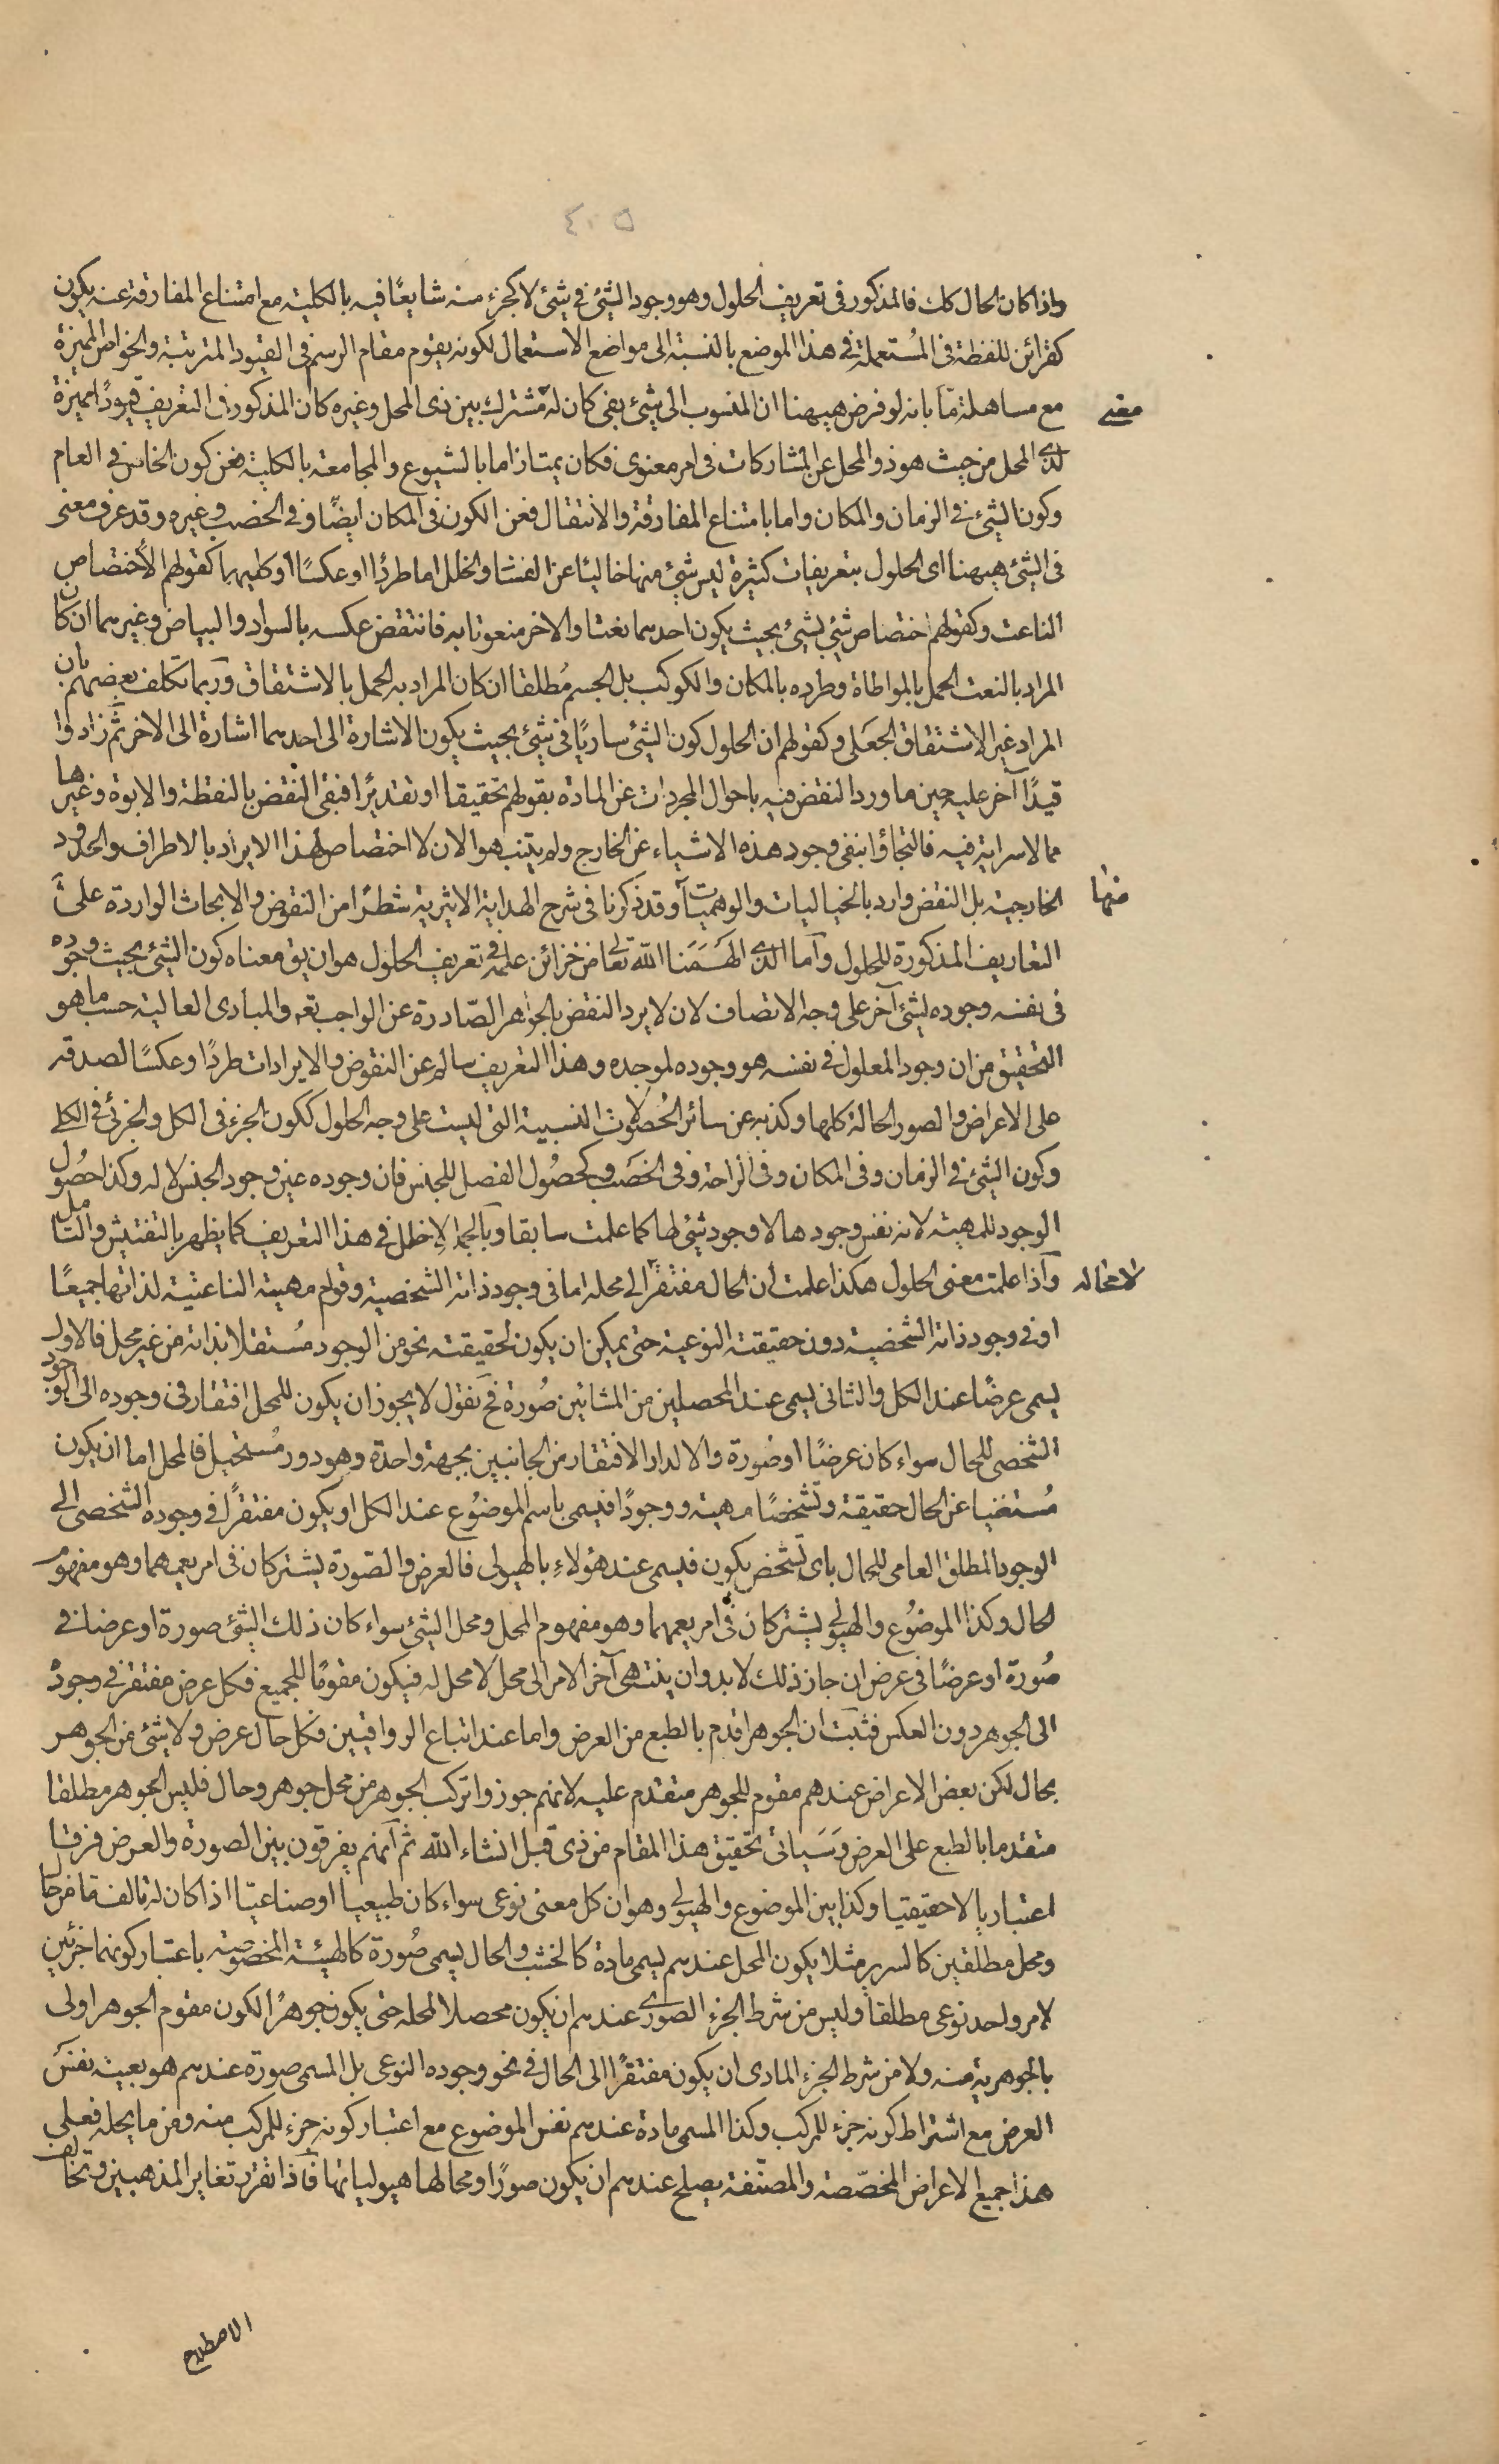 ٤٠٥
واذا كان الحال كك فالمذكور فى تعريف الحلول وهو وجود الشئ فى شئ لا كجزء منه شايعًا فيه بالكلية مع امتناع المفارقة عنه يكون
كقرائن للفظة فى المُستعملة فى هذا الموضع بالنسبة الى مواضع الاستعمال لكونه يقوم مقام الرسم فى القيود المترتبة والخواص المميزة
مع مساهلة مّا بانه لو فرض هيهنا ان المنسوب الى شئ بفى كان له مشترك بين ذى المحل وغيره كان المذكور فى التعريف قيودًا مميزة
معنى
لذى المحل من حيث هو ذو المحل عن المشاركات فى امر معنوى فكان يمتاز اما بالشيوع والمجامعة بالكلية فعن كون الخاص فى العام
وكون الشئ فى الزمان والمكان واما بامتناع المفارقة والانتقال فعن الكون فى المكان ايضًا وفى الخصب وغيره وقد عرف معنى
فى الشئ هيهنا اى الحلول بتعريفات كثيرة ليس شئ منها خاليًا عن الفساد والخلل اما طردًا او عكسًا او كليهما كقولهم الأختصاص
الناعت وكقولهم اختصاص شئ بشئ بحيث يكون احدهما نعتا والاخر منعوتا به فانتقض عكسه بالسواد والبياض وغيرهما ان كان
المراد بالنعت الحمل بالمواطاة وطرده بالمكان والكوكب بل الجسم مُطلقا ان كان المراد به الحمل بالاشتقاق وربما تكلف بعضهم بان
المراد غير الاشتقاق الجَعَلى وكقولهم ان الحلول كون الشئ ساريًا فى شئ بحيث يكون الاشارة الى احدهما اشارة الى الاخر ثم زادوا
قيدًا آخر عليه حين ما ورد النقض فيه باحوال المجردات عن المادة بقولهم تحقيقا او تقديرًا فبقى النقض بالنقطة والابوة وغيرها
مما لا سراية فيه فالتجاؤا بنفى وجود هذه الاشياء عن الخارج ولم يتنبهوا لان لا اختصاص لهذا الايراد بالاطراف والحدود
الخارجية بل النقض وارد بالخياليات والوهميات وقد ذكرنا فى شرح الهداية الاثيرية شطرًا من النقوض والابحاث الواردة على
منها
التعاريف المذكورة للحلول وآما الذى الهَمَنا الله تعالى من خزائن علمه فى تعريف الحلول هو ان يق معناه كون الشئ بحيث وجوده
فى نفسه وجوده لشئ آخر على وجه الاتصاف لان لا يرد النقض بالجواهر الصّادرة عن الواجب تعه والمبادى العالية حسب ما هو
التحقيق من ان وجود المعلول فى نفسه هو وجوده لموجده وهذا التعريف سالم عن النقوض والايرادات طردًا وعكسًا لصدقه
على الاعراض والصور الحالة كلها وكذبه عن سائر الحُصُولات النسبية التى ليست على وجه الحلول ككون الجزء فى الكل والجزئى فى الكلى
وكون الشئ فى الزمان وفى المكان وفى الراحة وفى الخصَب وكحصُول الفصل للجنس فان وجوده عين وجود الجنس لا له وكذا حصُول
الوجود للمهية لانه نفس وجودها لا وجود شئ لها كما علمت سابقا وبالجملة لا خلل فى هذا التعريف كما يظهر بالتفتيش والتامل
وآذا علمت معنى الحلول هكذا علمت ان الحال مفتقرًا الى محله اما فى وجود ذاته الشخصية وقوام مهيته الناعتية لذاتها جميعًا
لامحاله
او فى وجود ذاته الشخصية دون حقيقته النوعية حتى يمكن ان يكون لحقيقته نحو من الوجود مُستقلا بذاته من غير محل فالاول
يسمى عرضًا عند الكل والثانى يسمى عند المحصلين من المشائين صُورة فح نقول لا يجوز ان يكون للمحل افتقار فى وجوده الى الوجود
الشخصى للحال سواء كان عرضًا او صُورة والا لدار الافتقار من الجانبين بجهة واحدة وهو دور مُستحيل فالمحل اما ان يكون
مُستغنيا عن الحال حقيقة وتشخصًا مهية ووجودًا فيسمى باسم الموضوُع عند الكل او يكون مفتقرًا فى وجوده الشخصى الى
الوجود المطلق العامى للحال باى تشخص يكون فيسمى عند هؤلاءِ بالهيولى فالعرض والصّورة يشتركان فى امر يعمهما وهو مفهوم
الحال وكذا الموضوُع والهيولى يشتركان فى امر يعمهما وهو مفهوم المحل ومحل الشئ سواء كان ذلك الشئ صورة او عرضا فى
صُورة او عرضًا فى عرض ان جاز ذلك لابد وان ينتهى آخر الامر الى محل لا محل له فيكون مقومًا للجميع فكل عرض مفتقر فى وجوده
الى الجوهر دون العكس فثبت ان الجوهر اقدم بالطبع من العرض واما عند اتباع الرواقيين فكل حال عرض ولا شئ من الجوهر
بحال لكن بعض الاعراض عندهم مقوم للجوهر متقدم عليه لانهم جوزوا تركب الجوهر من محل جوهر وحال فليس الجوهر مطلقا
متقدما بالطبع على العرض وَسَياتى تحقيق هذا المقام من ذى قبل انشاء الله ثم آنهم يفرقون بين الصورة والعرض فرقا
اعتباريا لا حقيقيا وكذا بين الموضوع والهيولى وهو ان كل معنى نوعى سواء كان طبيعيا او صناعيّا اذا كان له تالف ما من حال
ومحل مطلقين كالسرير مثلا يكون المحل عندهم يسمى مادة كالخشب والحال يسمى صُورة كالهيئة المخصوصة باعتبار كونهما جزئين
لامر واحد نوعى مطلقا وليس من شرط الجزء الصورى عندهم ان يكون محصلا لمحله حتى يكون جوهرًا لكون مقوم الجوهر اولى
بالجوهرية منه ولا من شرط الجزء المادى ان يكون مفتقرًا الى الحال فى نحو وجوده النوعى بل المسمى صورة عندهم هو بعينه نفس
العرض مع اشتراط كونه جزء للمركب وكذا المسمى مادة عندهم نفس الموضوع مع اعتبار كونه جزء للمركب منه ومن ما يحله فعلى
هذا جميع الاعراض المخصّصة والمصنّفة يصلح عندهم ان يكون صورًا ومحالها هيولياتها فآذا تقرر تغاير المذهبين وتخالف
الاصطلاح